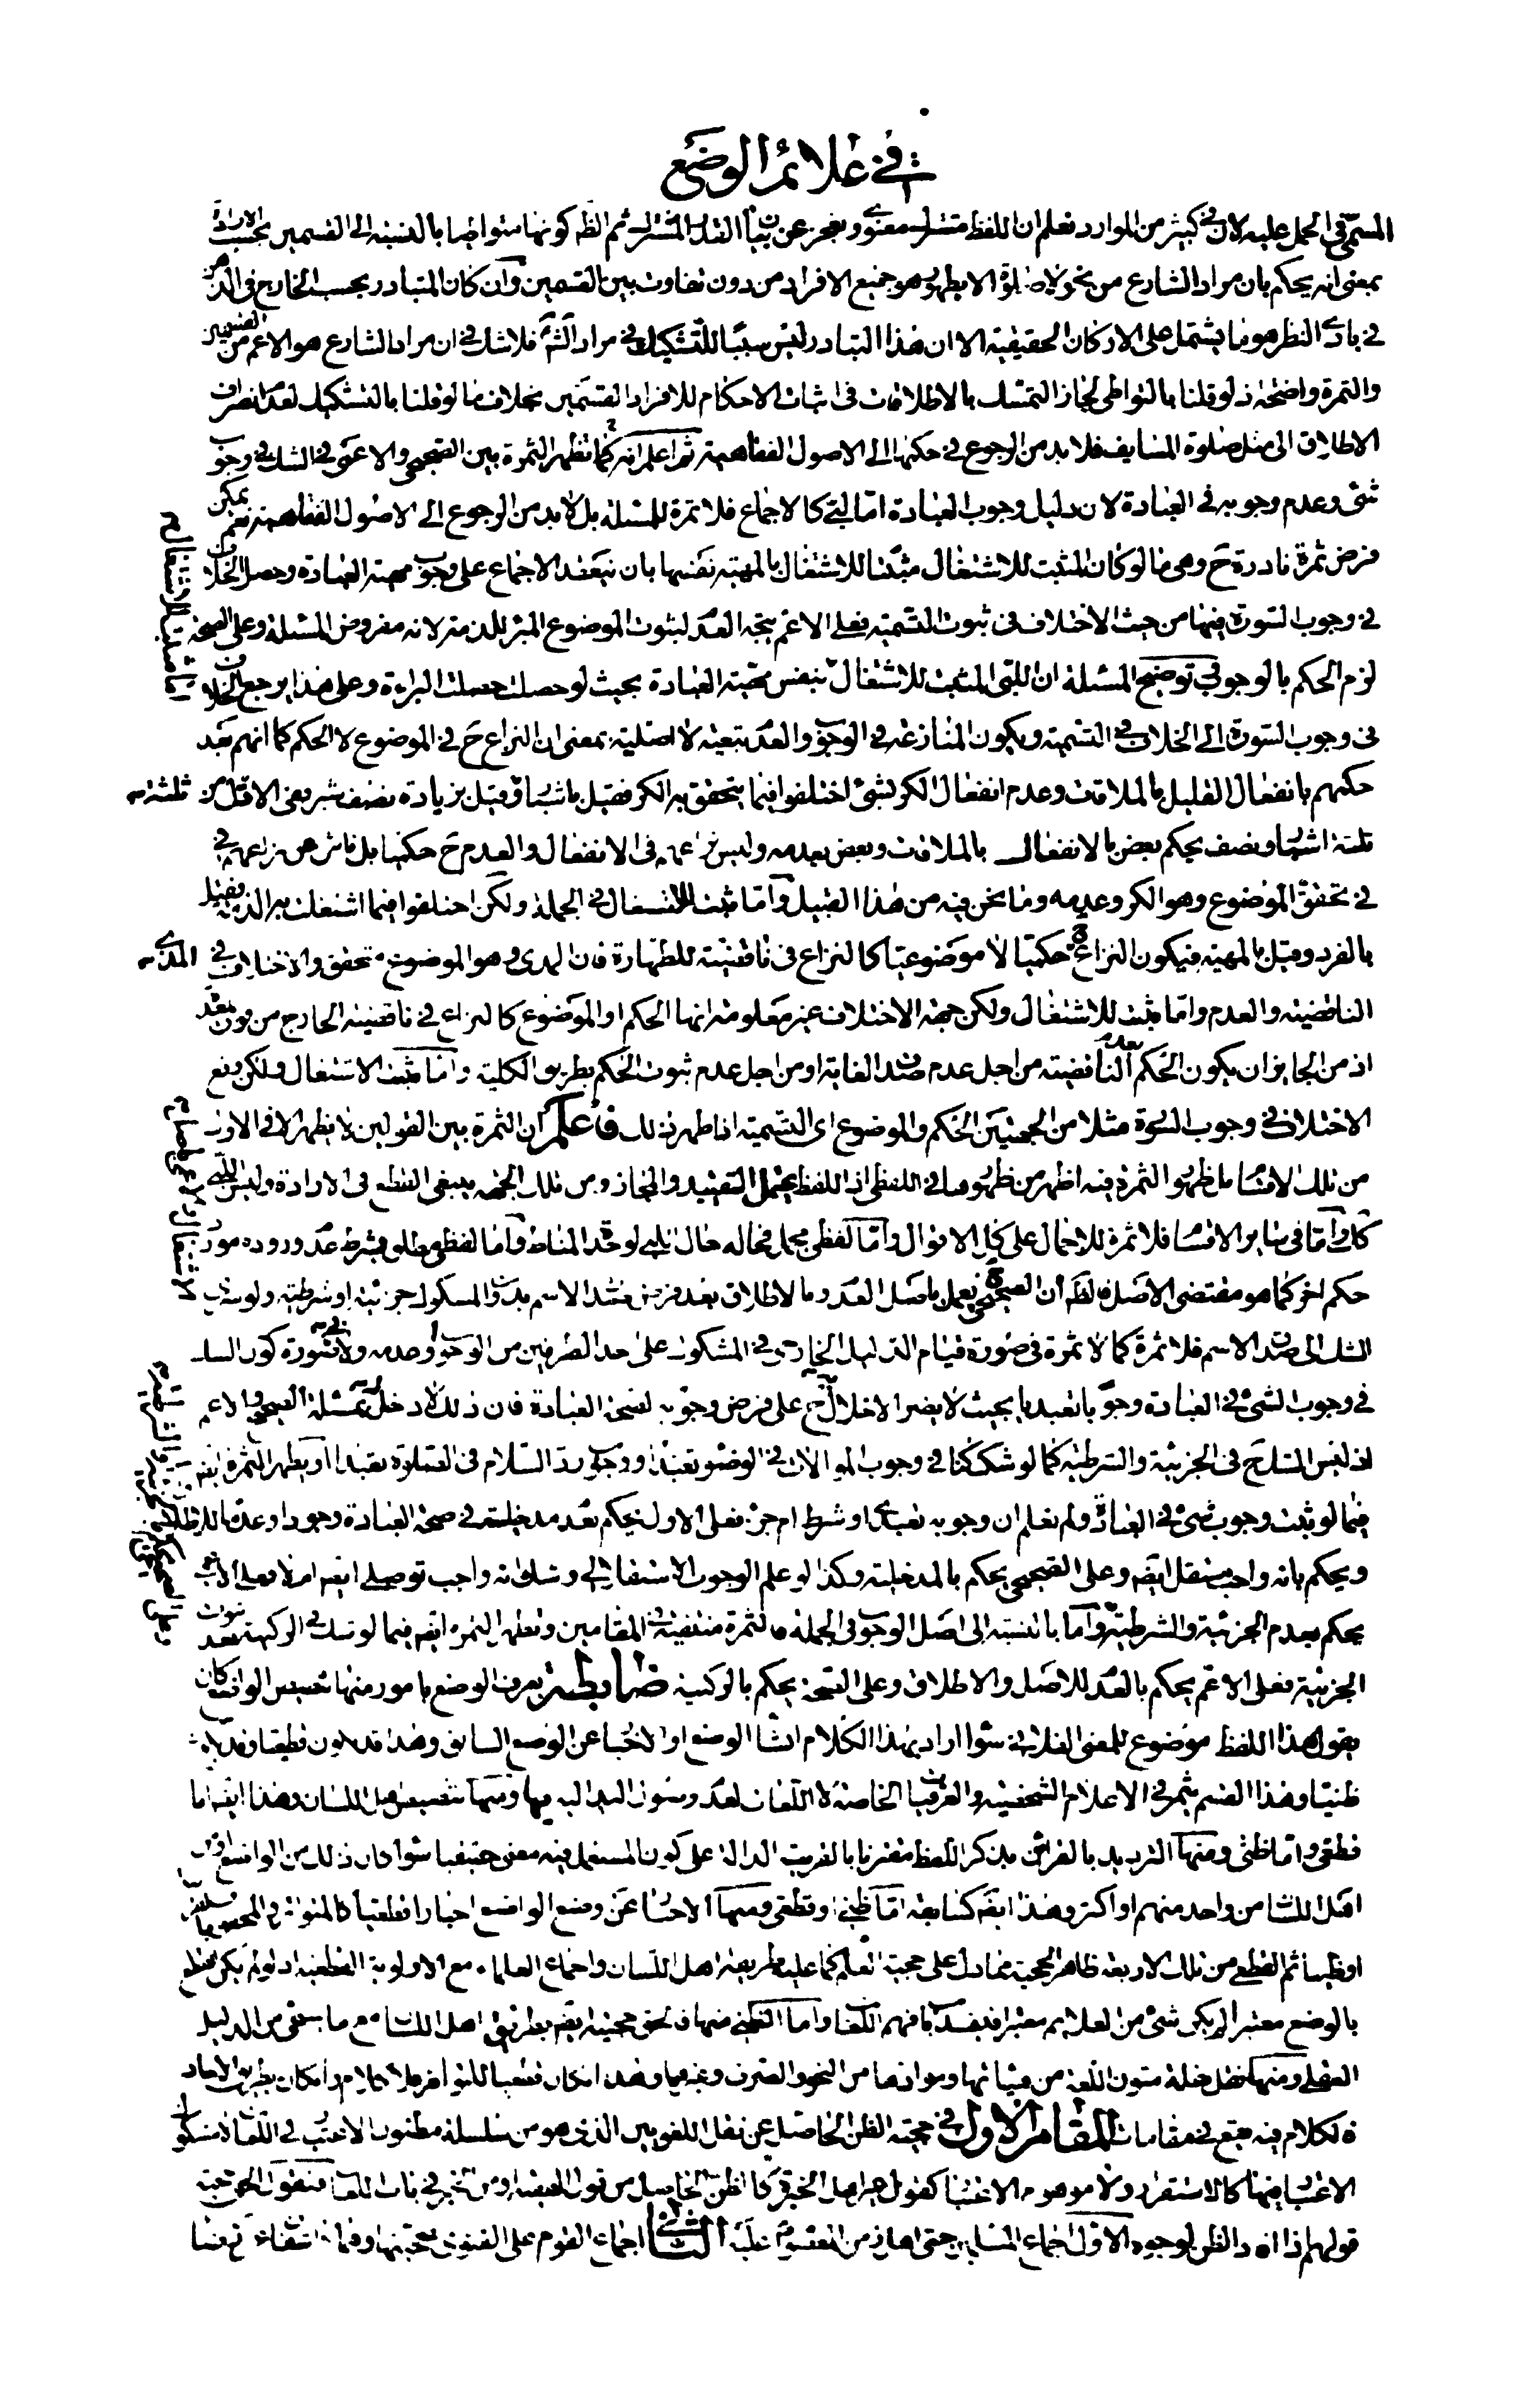 في علائم الوضع
المسمى في الحمل عليه لان في كثير من الموارد نعلم ان اللفظ مشترك معنوي ونعجز عن بيان القدر المشترك ثم الظ كونها متواطيا بالنسبة الى القسمين بحسب الارادة
بمعنى انه يحكم بان مراد الشارع من نحو لا صلوة الا بطهور هو جميع الافراد من دون تفاوت بين القسمين وان كان المتبادر بحسب الخارج في الذهن
في بادي النظر هو ما يشتمل على الاركان الحقيقية الا ان هذا التبادر ليس سببا للتشكيك في مراد الش فلا شك في ان مراد الشارع هو الاعم من القسمين
والثمرة واضحة اذ لو قلنا بالتواطي لجاز التمسك بالاطلاقات في اثبات الاحكام للافراد القسمين بخلاف ما لو قلنا بالتشكيك لعدم انصراف
الاطلاق الى مثل صلوة المسايف فلا بد من الرجوع في حكمها الى الاصول الفقاهية ثم اعلم انه كما تظهر الثمرة بين الصحيحي والاعمى في الشك في وجوب
شئ وعدم وجوبه في العبادة لان دليل وجوب العبادة اما لبي كالاجماع فلا ثمرة للمسئلة بل لا بد من الرجوع الى الاصول الفقاهية نعم يمكن
فرض ثمرة نادرة ح وهي ما لو كان المثبت للاشتغال مثبتا للاشتغال بالمهية نفسها بان ينعقد الاجماع على وجوب مهية العبادة وحصل الخلاف
في وجوب السورة فيها من حيث الاختلاف في ثبوت التسمية فعلى الاعم يتجه العدم لثبوت الموضوع المبرء للذمة لانه مفروض المسئلة وعلى الصحة
لزم الحكم بالوجوب في توضيح المسئلة ان اللبى المثبت للاشتغال بنفس مهية العبادة بحيث لو حصلت حصلت البراءة وعلى هذا يرجع الخلاف
في وجوب السورة الى الخلاف في التسمية ويكون المنازعة في الوجوب والعدم تبعية لا اصلية بمعنى ان النزاع ح في الموضوع لا الحكم كما انهم بعد
حكمهم بانفعال القليل بالملاقات وعدم انفعال الكر بشئ اختلفوا فيما يتحقق به الكر فقيل باشبار وقيل بزيادة نصف شبر ففي الاقل من ثلثة
ثلثة اشبار ونصف يحكم بعض بالانفعال بالملاقات وبعض بعدمه وليس نزاعهم في الانفعال والعدم ح حكميا بل ناش من نزاعهم في
في تحقق الموضوع وهو الكر وعدمه وما نحن فيه من هذا القبيل واما مثبت للاشتغال في الجملة ولكن اختلفوا فيما اشتغلت به الذمة فقيل
بالفرد وقيل بالمهية فيكون النزاع ح حكميا لا موضوعيا كالنزاع في ناقضية للطهارة فان المذي هو الموضوع متحقق والاختلاف في المذي
الناقضية والعدم واما مثبت للاشتغال ولكن جهة الاختلاف غير معلومة انها الحكم او الموضوع كالنزاع في ناقضية الخارج من دون معد
اذ من الجايز ان يكون الحكم بعدم الناقضية من اجل عدم صدق الغاية او من اجل عدم ثبوت الحكم بطريق الكلية واما مثبت الاشتغال ولكن وقع
الاختلاف في وجوب السورة مثلا من الجهتين الحكم والموضوع اى التسمية اذا ظهر ذلك فاعلم ان الثمرة بين القولين لا يظهر الا في الاول
من تلك الاقسام بل ظهور الثمرة فيه اظهر من ظهورها في اللفظي اذ اللفظ يحتمل التقييد والمجاز ومن تلك الجهة ينبغي القطع في الارادة وليس اللبى
كك واما في ساير الاقسام فلا ثمرة للاجمال على كل الاقوال واما لفظي مجمل فحاله حال اللبي لوحدة المناط واما لفظي مطلق بشرط عدم وروده مورد
حكم اخر كما هو مقتضى الاصل فالظ ان الصحيحي يعمل باصل العدم وبالاطلاق بعد فرض صدق الاسم بدون المشكوك جزئيته او شرطيته ولو سرى
الشك الى صدق الاسم فلا ثمرة كما لا ثمرة في صورة قيام الدليل الخارجي في المشكوك على احد الطرفين من الوجوب وعدمه ولا في صورة كون الشك
في وجوب الشئ في العبادة وجوبا تعبديا بحيث لا يضر الاخلال به على فرض وجوبه لصحة العبادة فان ذلك لا دخل له بمسئلة الصحيحي والاعم
اذ ليس الشك ح في الجزئية والشرطية كما لو شككنا في وجوب الموالات في الوضوء تعبدا ووجوب رد السلام في الصلوة تعبدا ويظهر الثمرة ايضا
فيما لو ثبت وجوب شئ في العبادة ولم نعلم ان وجوبه تعبدي او شرط ام جزء فعلى الاول يحكم بعدم مدخليته في صحة العبادة وجودا وعدما للاطلاق
ويحكم بانه واجب مستقل ايضا وعلى الصحيحي يحكم بالمدخلية وكذا لو علم الوجوب الاستقلالي وشك انه واجب توصلي ايضا ام لا فعلى الاعم
يحكم بعدم الجزئية والشرطية واما بالنسبة الى اصل الوجوب في الجملة فالثمرة منتفية في المقامين وتظهر الثمرة ايضا فيما لو شك في الركنية بعد ثبوت
الجزئية فعلى الاعم يحكم بالعدم للاصل والاطلاق وعلى الصحة يحكم بالركنية ضابطة يعرف الوضع بامور منها تنصيص الواضع كان
يقول هذا اللفظ موضوع للمعنى الفلاني سواء اراد بهذا الكلام انشاء الوضع او الاخبار عن الوضع السابق وهذا قد يكون قطعيا وقد يكون
ظنيا وهذا القسم يثمر في الاعلام الشخصية والعرفيات الخاصة لا اللغات لعدم وصول اليد اليه فيها ومنها تنصيص اهل اللسان وهذا ايضا اما
قطعي واما ظني ومنها الترديد بالقرائن بذكر اللفظ مقترنا بالقرينة الدالة على كون المستعمل فيه معنى حقيقيا سواء كان ذلك من الواضع او من
اهل اللسان من واحد منهم او اكثر وهذا ايضا كسابقه اما ظني او قطعي ومنها الاخبار عن وضع الواضع اخبارا قطعيا كالمتواتر والمحفوف
او ظنيا ثم القطعي من تلك الاربعة ظاهر الحجية مما دل على حجية العلم كما عليه طريقة اهل اللسان واجماع العلماء مع الاولوية القطعية اذ لو لم يكن القطع
بالوضع معتبرا لم يكن شئ من العلايم معتبرا فينسد باب فهم اللغات واما الظني منها فالحق حجيته ايضا بطريقة اهل اللسان مع ما سيجئ من الدليل
العقلي ومنها نقل نقلة متون اللغة من هيئاتها وموادها من النحو والصرف وغيرهما وهذا ان كان قطعيا للتواتر فلا كلام وان كان بطريق الاحاد
فالكلام فيه يقع في مقامات المقام الاول في حجية الظن الحاصل عن نقل اللغويين الذي هو من سلسلة مظنون الاعتبار في اللغات لا مشكوك
الاعتبار فيها كالاستقراء ولا موهوم الاعتبار كقول غير اهل الخبرة كالظن الحاصل من قول الفقيه في باب اللغات فنقول الحق حجية
قولهم اذا افاد الظن لوجوه الاول اجماع المسلمين حتى اهاليهم من المعصوم عليه الثاني اجماع القوم على الفتوى بحجيتها